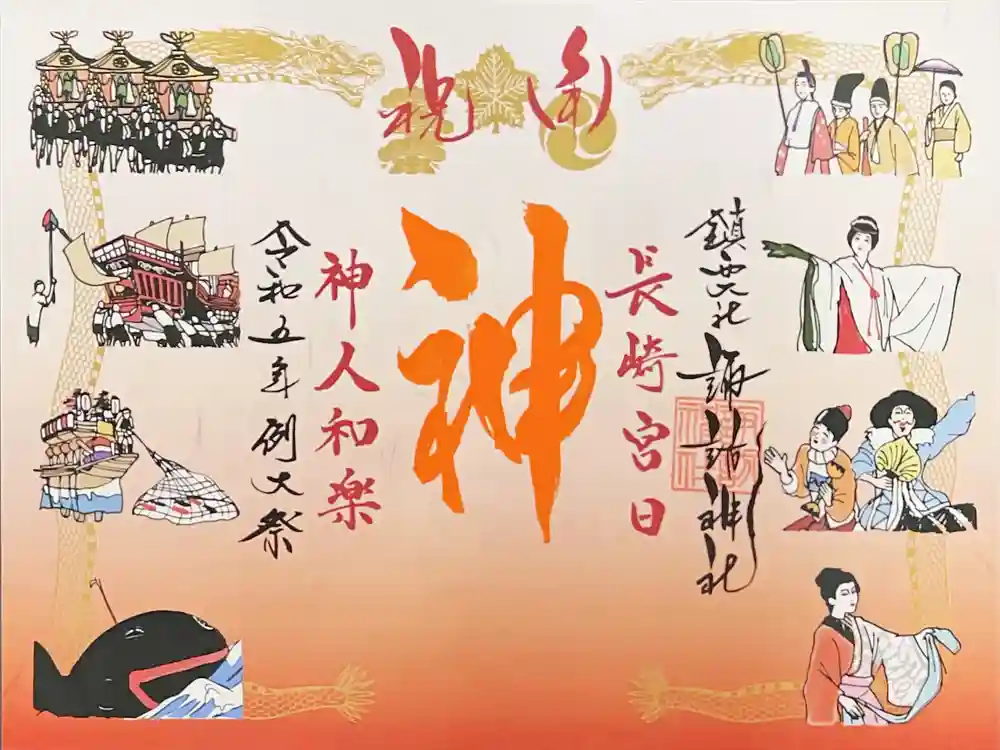 奉祝
鎮西大社 諏訪神社
長崎宮日
神
神人和楽
令和五年例大祭